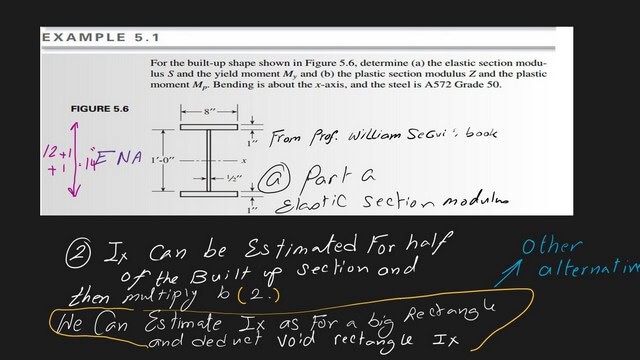 EXAMPLE 5.1
For the built-up shape shown in Figure 5.6, determine (a) the elastic section modu-
lus S and the yield moment My and (b) the plastic section modulus Z and the plastic
moment Mp. Bending is about the x-axis, and the steel is A572 Grade 50.
FIGURE 5.6
8"
1"
From Prof. William SeGui's book
12+1
+1 = 14"
ENA
1'-0"
x
½"
1"
(a) Part a
Elastic section modulus
(2) Ix Can be Estimated For half
of the Built up section and
then multiply b (2.)
Other
alternative
We Can Estimate Ix as for a big Rectangle
and deduct void rectangle Ix